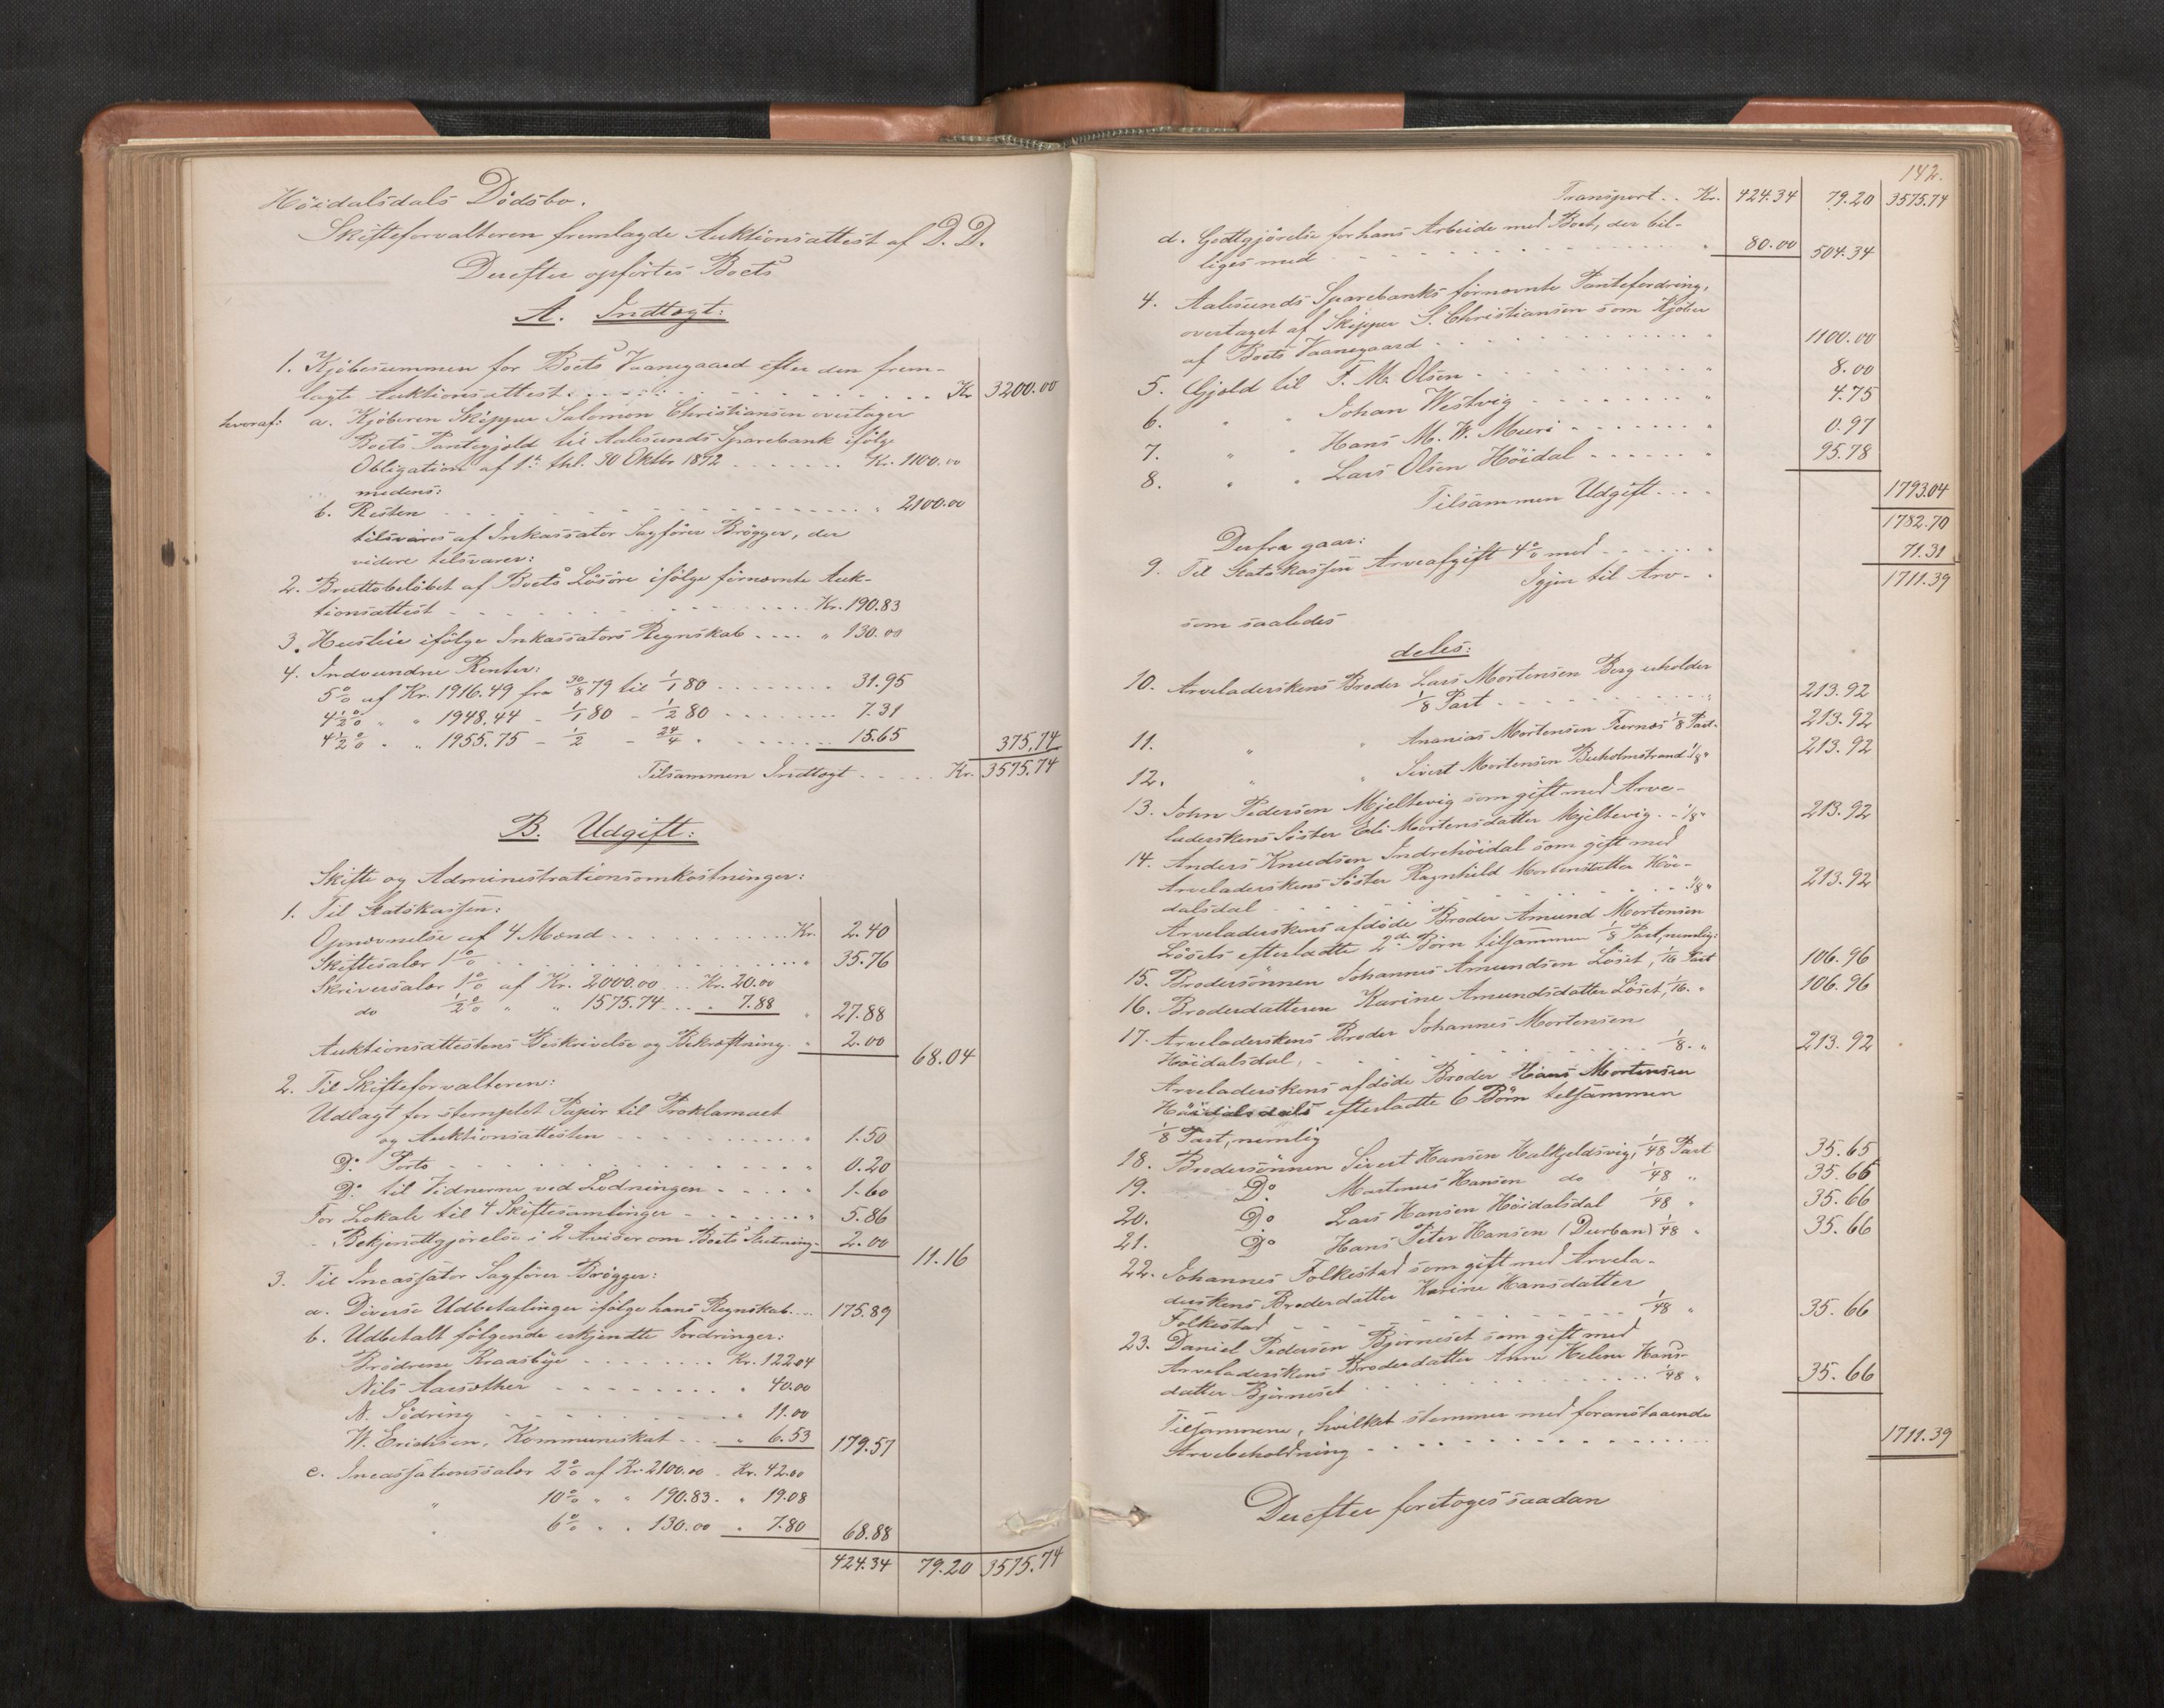 Höidalsdals Dödsbo.
Skifteforvalteren fremlagde Auktionsattest af D. D.
Derefter opførtes Boets
A. Indtægt:
1. Kjöbesummen for Boets Vaanegaard efter den frem-
lagte Auktionsattest . . . . Kr. 3200.00
hvoraf: a. Kjöberen Skipper Salomon Christiansen overtager
Boets Pantegjeld til Aalesunds Sparebank ifölge
Obligation af 1ste thl. 30 Oktbr 1872 . . . . Kr. 1100.00
medens:
b. Resten . . . . " 2100.00
tilsvares af Inkassator Sagförer Brögger, der
videre tilsvarer:
2. Bruttobelöbet af Boets Lösöre ifölge förnævnte Auk-
tionsattest . . . . Kr. 190.83
3. Husleie ifölge Inkassators Regnskab . . . . " 130.00
4. Indvundne Renter:
5 % af Kr. 1916.49 fra 30/8 79 til 1/1 80 . . . . 31.95
4 1/2 % " " 1948.44 - 1/1 80 - 1/2 80 . . . . 7.31
4 1/2 % " " 1955.75 - 1/2 - 24/4 " . . . . 15.65 375.74
Tilsammen Indtægt . . . . Kr. 3575.74
B. Udgift:
Skifte og Administrationsomkostninger:
1. Til Statskassen:
Opnævnelse af 4 Mænd . . . . Kr. 2.40
Skiftesalær 1 % . . . . " 35.76
Skriversalær 1 % af Kr. 2000.00 . . Kr. 20.00
do 1/2 % " " 1575.74 . . " 7.88 " 27.88
Auktionsattestens Beskrivelse og Bekræftning " 2.00 68.04
2. Til Skifteforvalteren:
Udlagt for stemplet Papir til Proklamaet
og Auktionsattesten . . . . " 1.50
Do Porto . . . . " 0.20
Do til Vidnerne ved Lodningen . . . . " 1.60
For Lokale til 4 Skiftesamlinger . . . . " 5.86
" Bekjendtgjörelse i 2 Aviser om Boets Slutning 2.00 11.16
3. Til Incassator Sagförer Brögger:
a. Diverse Udbetalinger ifölge hans Regnskab . . . 175.89
b. Udbetalt fölgende erkjendte Fordringer:
Brödrene Kraasbye . . . . Kr. 122.04
Nils Aarsæther . . . . " 40.00
N. Södring . . . . " 11.00
W. Erichsen, Kommuneskat . . . . " 6.53 179.57
c. Incassationssalær 2 % af Kr. 2100.00 . Kr. 42.00
" 10 % " " 190.83 . " 19.08
" 6 % " " 130.00 " 7.80 68.88
424.34 79.20 3575.74
142.
Transport . . Kr. 424.34 79.20 3575.74
d. Godtgjörelse for hans Arbeide med Boet, der bil-
liges med . . . . " 80.00 504.34
4. Aalesunds Sparebanks förnævnte Pantefordring,
overtaget af Skipper S. Christiansen som Kjöber
af Boets Vaanegaard . . . . " 1100.00
5. Gjeld til F. M. Olsen . . . . " 8.00
6. " " Johan Westvig . . . . " 4.75
7. " " Hans M. W. Muri . . . . " 0.97
8. " " Lars Olsen Höidal . . . . " 95.78
Tilsammen Udgift . . . . 1793.04
1782.70
Derfra gaar:
9. Til Statskassen Arveafgift 4 % med . . . . " 71.31
Igjen til Arv . " 1711.39
som saaledes
deles:
10. Arveladerskens Broder Lars Mortensen Berg erholder
1/8 Part . . . . " 213.92
11. " " Ananias Mortensen Furnes 1/8 Part. 213.92
12. " " Sivert Mortensen Buholmstrand 1/8 " 213.92
13. John Pedersen Mjeltevig som gift med Arve-
laderskens Söster Eli Mortensdatter Mjeltevig . . 1/8 " 213.92
14. Anders Knudsen Indrehöidal som gift med
Arveladerskens Söster Ragnhild Mortensdatter Höi-
dalsdal . . . . 1/8 " 213.92
Arveladerskens afdöde Broder Amund Mortensen
Lösets efterladte 2de Börn tilsammen 1/8 Part, nemlig:
15. Brodersönnen Johannes Amundsen Löset, 1/16 Part 106.96
16. Broderdatteren Karine Amundsdatter Löset, 1/16. " 106.96
17. Arveladerskens Broder Johannes Mortensen
Höidalsdal, . . . . 1/8. " 213.92
Arveladerskens afdöde Broder Hans Mortensen
Höidalsdals efterladte 6 Börn tilsammen
1/8 Part, nemlig
18. Brodersönnen Sivert Hansen Halkjeldsvig, 1/48 Part 35.65
19. Do Martinus Hansen do 1/48 " 35.66
20. Do Lars Hansen Höidalsdal 1/48 " 35.66
21. Do Hans Peter Hansen (Durban) 1/48 " 35.66
22. Johannes Folkestad som gift med Arvela-
derskens Broderdatter Karine Hansdatter
Folkestad . . . . 1/48 " 35.66
23. Daniel Pedersen Björneset som gift med
Arveladerskens Broderdatter Anne Helene Hans-
datter Björneset . . . . 1/48 " 35.66
Tilsammen, hvilket stemmer med foranstaaende
Arvebeholdning . . . . 1711.39
Derefter foretoges saadan